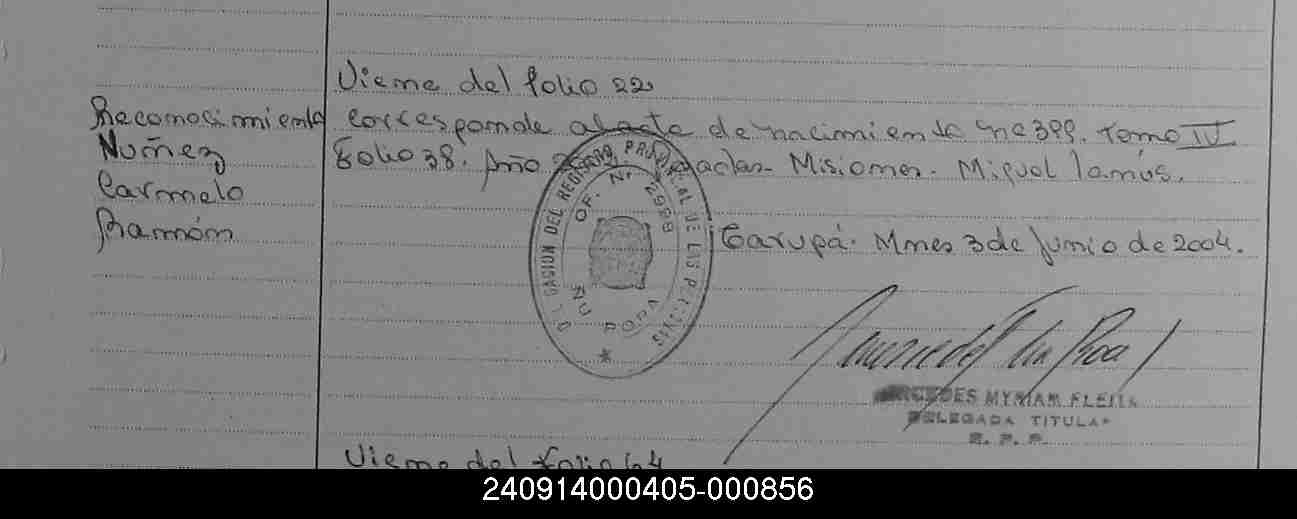 Viene del folio 22
Reconocimiento corresponde al acta de nacimiento nº 399. Tomo IV
Nuñez folio 38. Año Posadas Misiones. Miguel Lanús.
Carmelo
Ramón Garupá. Mnes 3 de Junio de 2004.
DELEGACION DEL REGISTRO PROVINCIAL DE LAS PERSONAS
OF. Nº 2998
MYRIAM FLEITA
DELEGADA TITULAR
R. P. P.
Viene del folio 64
240914000405-000856